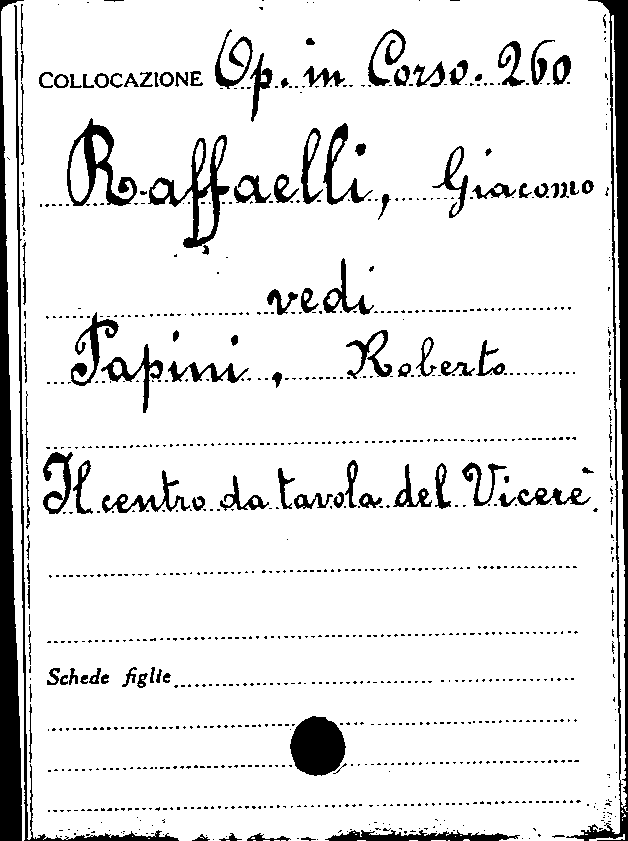 COLLOCAZIONE Op. in Corso. 260
Raffaelli, Giacomo
vedi
Papini, Roberto
Il centro da tavola del Vicerè.
Schede figlie